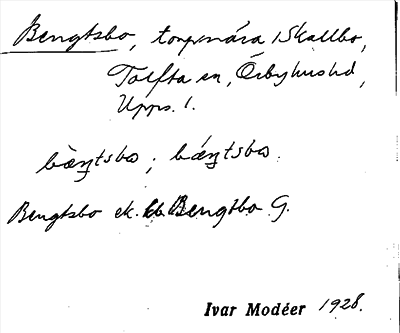 Bengtsbo, torp nära Skallbo,
Tolfta sn, Örbyhus hd,
Upps. l.
bæ̀ŋtsbo ; bǽŋtsbo.
Bengtsbo ek. kb. Bengtbo G.
Ivar Modéer 1928.